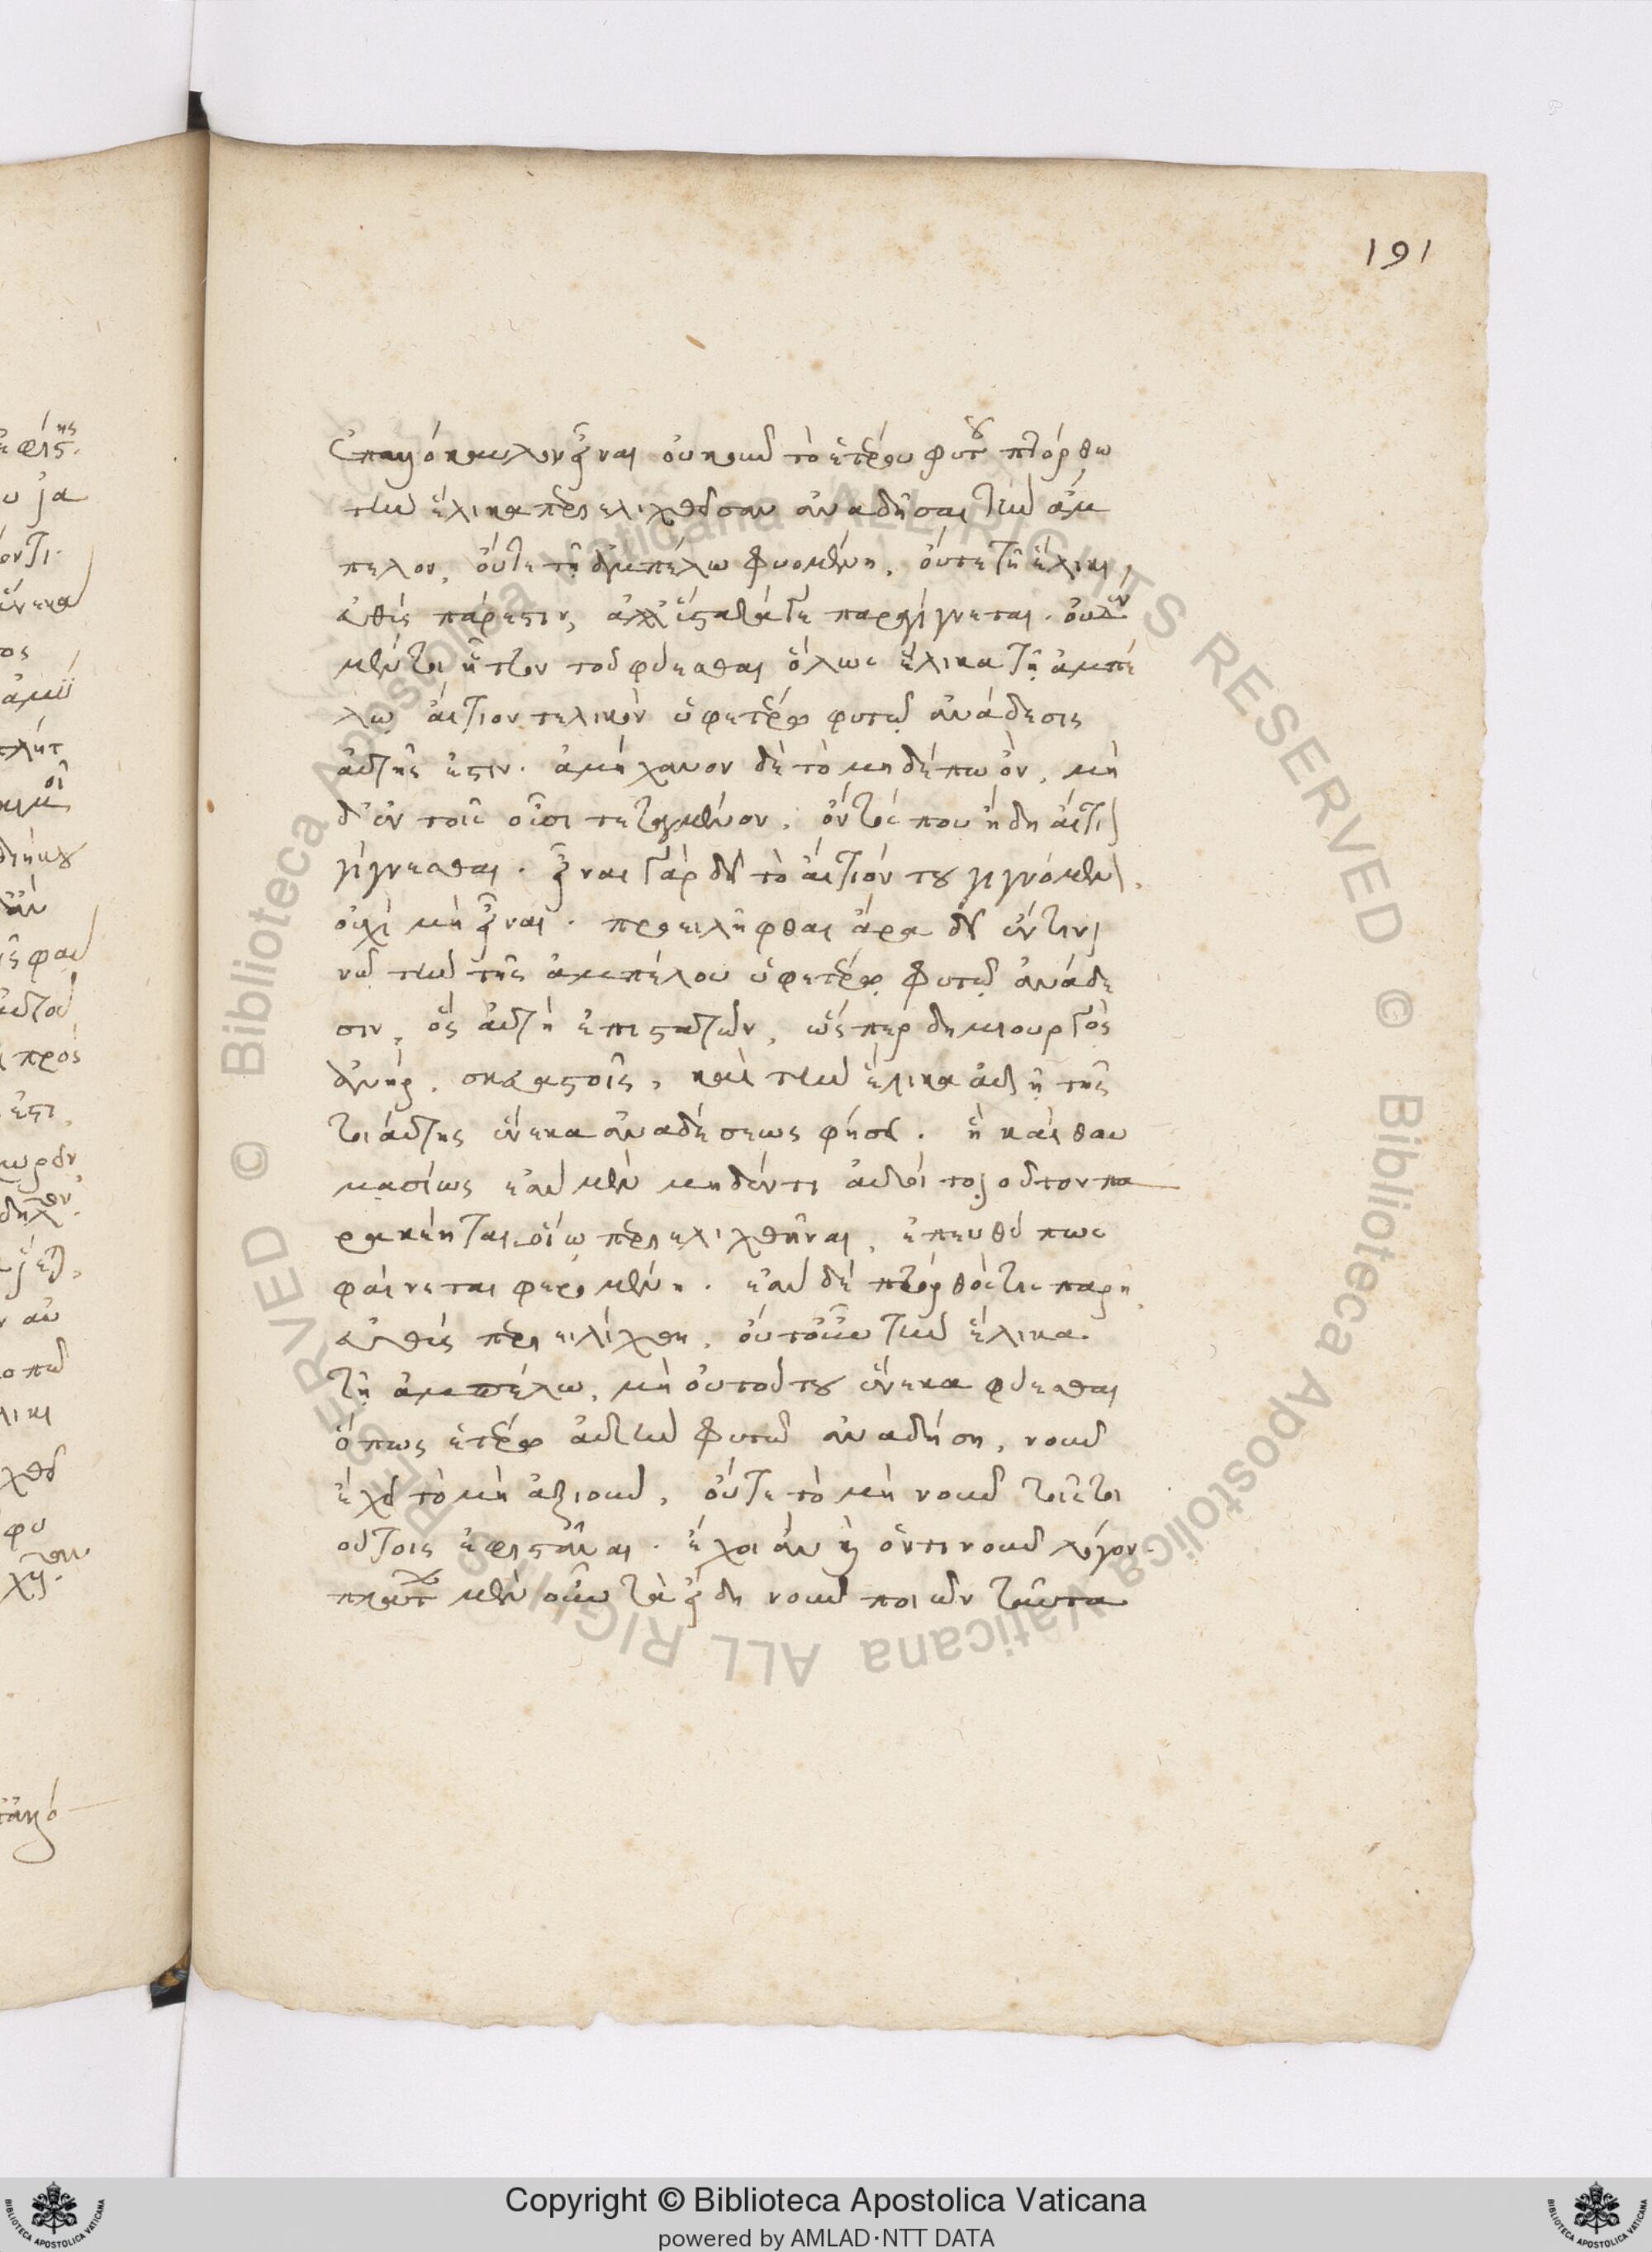 191
ἐπαγόμενον εἶναι οὐκοῦν τὸ ἑτέρου φυτοῦ πτόρθω
τὴν ἕλικα περιελιχθεῖσαν ἀναδῆσαι τὴν ἄμ
πελον, οὔτε τῇ ἀμπέλω φυομένη, οὔτε τῇ ἕλικι,
εὐθὺς πάρεστιν, ἀλλ' εἰσαῦθίς τε παραγίγνεται. οὐδὲν
μέντοι ἧττον τοῦ φύεσθαι ὅλως ἕλικα τῇ ἀμπέ
λῳ αἴτιον τελικὸν ὑφ' ἑτέρῳ φυτῷ ἀνάδεσις
αὐτῆς ἐστιν. ἀμήχανον δὲ τὸ μηδέπω ὂν, μη
δ' ἐν τοῖς οὖσι τεταγμένον, ὄντος που ἤδη αἴτιον
γίγνεσθαι. εἶναι γὰρ δεῖ τὸ αἴτιόν του γιγνόμενον,
οὐχὶ μὴ εἶναι. προειλῆφθαι ἄρα δεῖ ἔν τινι
νῷ τὴν τῆς ἀμπέλου ὑφ' ἑτέρῳ φυτῷ ἀνάδε
σιν, ὃς αὐτῇ ἐπιστατῶν, ὥσπερ δημιουργὸς
ἀνὴρ, σκευαστοῖς, καὶ τὴν ἕλικα αὐτῇ τῆς
τοιαύτης ἕνεκα ἀναδέσεως φύσει. ἣ καὶ θαυ
μασίως ἐὰν μὲν μηδέν τι αὐτῇ τοιοῦτον πα
ρακέηται, οἵῳ περιελιχθῆναι, ἐπευθύ πως
φαίνεται φερομένη. ἐὰν δὲ πτόρθός τις παρῇ,
εὐθὺς περιειλίχθη. οὔτ' οὖν τὴν ἕλικα
τῇ ἀμπέλω, μὴ οὐ τούτου ἕνεκα φύεσθαι
ὅπως ἑτέρῳ αὐτὴν φυτῷ ἀναδήση, νοῦν
ἔχει τὸ μὴ ἀξιοῦν, οὔτε τὸ μὴ νοῦν τοῖς τοι
ούτοις ἐφιστάναι. ἔχοι ἂν καὶ ὁντινοῦν λόγον.
πρῶτον μὲν οὖν τὰ εἴδη νοῦν ποιῶν ταῦτα
Copyright © Biblioteca Apostolica Vaticana
powered by AMLAD·NTT DATA